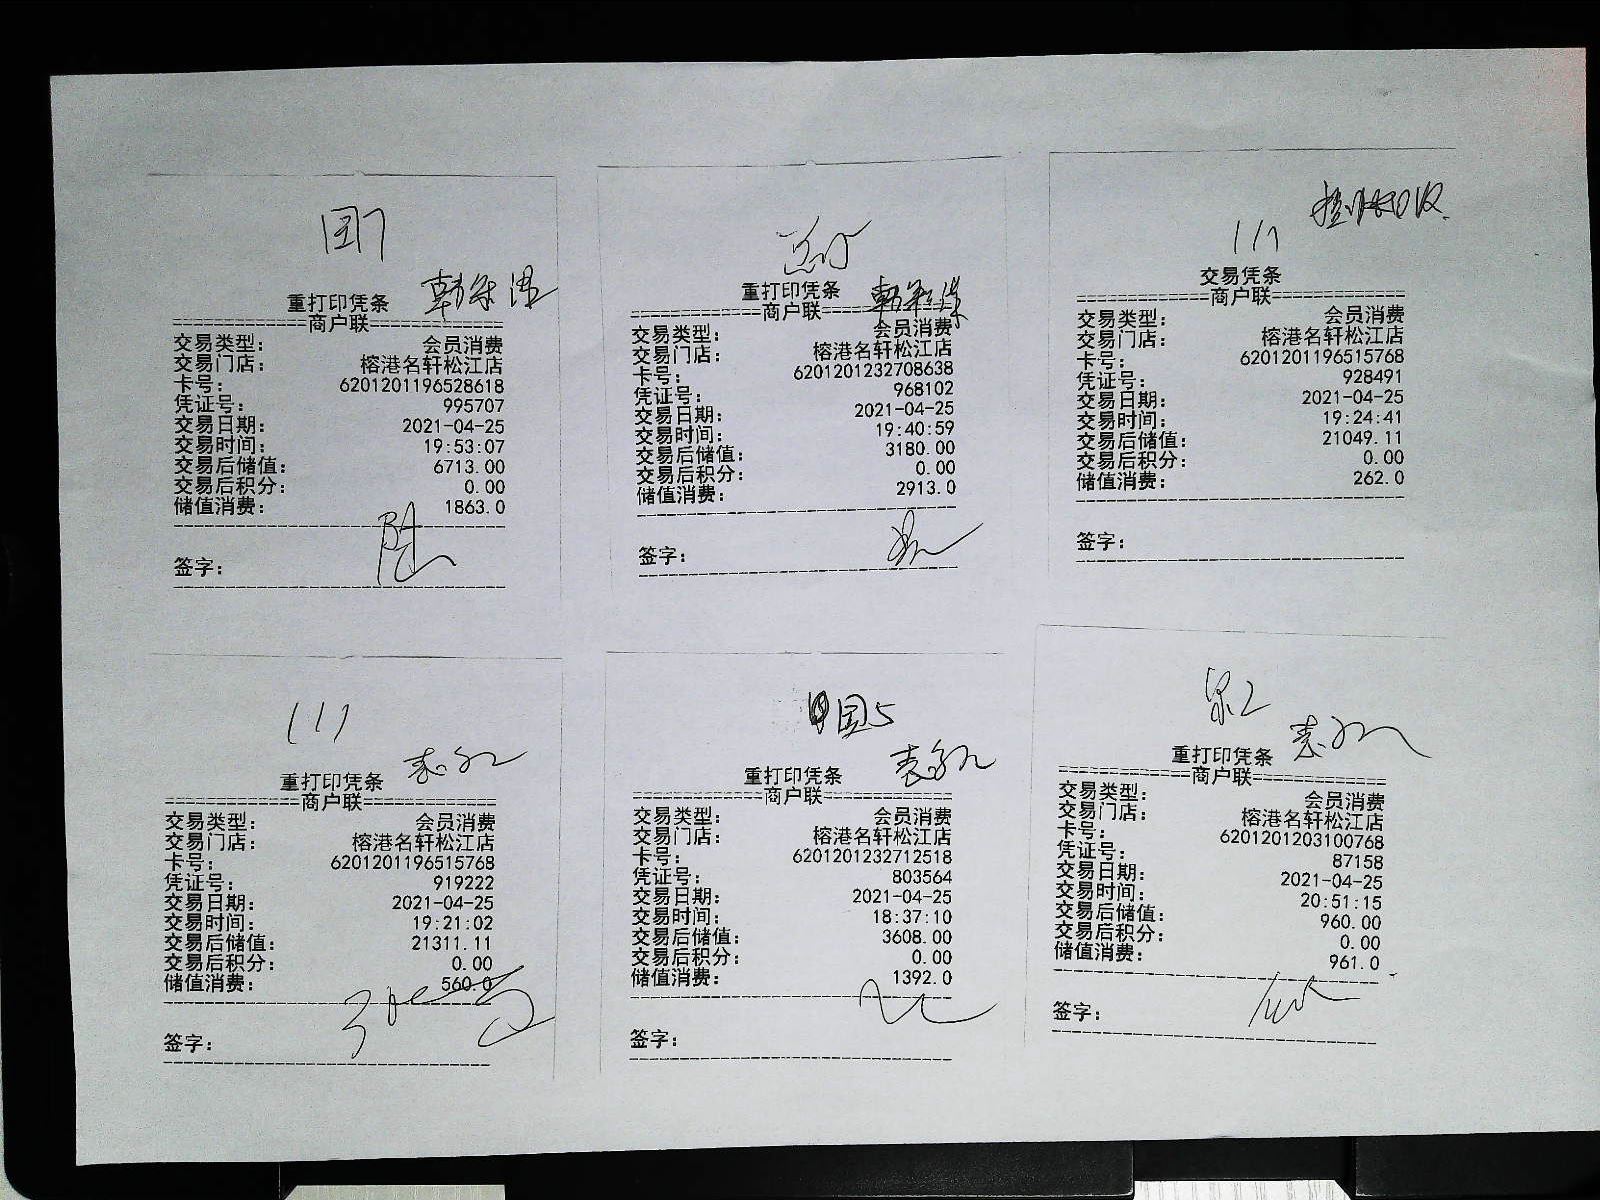 国7
重打印凭条
商户联
交易类型： 会员消费
交易门店： 榕港名轩松江店
卡号： 6201201196528618
凭证号： 995707
交易日期： 2021-04-25
交易时间： 19:53:07
交易后储值： 6713.00
交易后积分： 0.00
储值消费： 1863.0
签字：
重打印凭条
商户联
交易类型： 会员消费
交易门店： 榕港名轩松江店
卡号： 6201201232708638
凭证号： 968102
交易日期： 2021-04-25
交易时间： 19:40:59
交易后储值： 3180.00
交易后积分： 0.00
储值消费： 2913.0
签字：
111
交易凭条
商户联
交易类型： 会员消费
交易门店： 榕港名轩松江店
卡号： 6201201196515768
凭证号： 928491
交易日期： 2021-04-25
交易时间： 19:24:41
交易后储值： 21049.11
交易后积分： 0.00
储值消费： 262.0
签字：
111
重打印凭条
商户联
交易类型： 会员消费
交易门店： 榕港名轩松江店
卡号： 6201201196515768
凭证号： 919222
交易日期： 2021-04-25
交易时间： 19:21:02
交易后储值： 21311.11
交易后积分： 0.00
储值消费： 560.0
签字：
国5
重打印凭条
商户联
交易类型： 会员消费
交易门店： 榕港名轩松江店
卡号： 6201201232712518
凭证号： 803564
交易日期： 2021-04-25
交易时间： 18:37:10
交易后储值： 3608.00
交易后积分： 0.00
储值消费： 1392.0
签字：
重打印凭条
商户联
交易类型： 会员消费
交易门店： 榕港名轩松江店
卡号： 6201201203100768
凭证号： 87158
交易日期： 2021-04-25
交易时间： 20:51:15
交易后储值： 960.00
交易后积分： 0.00
储值消费： 961.0
签字：